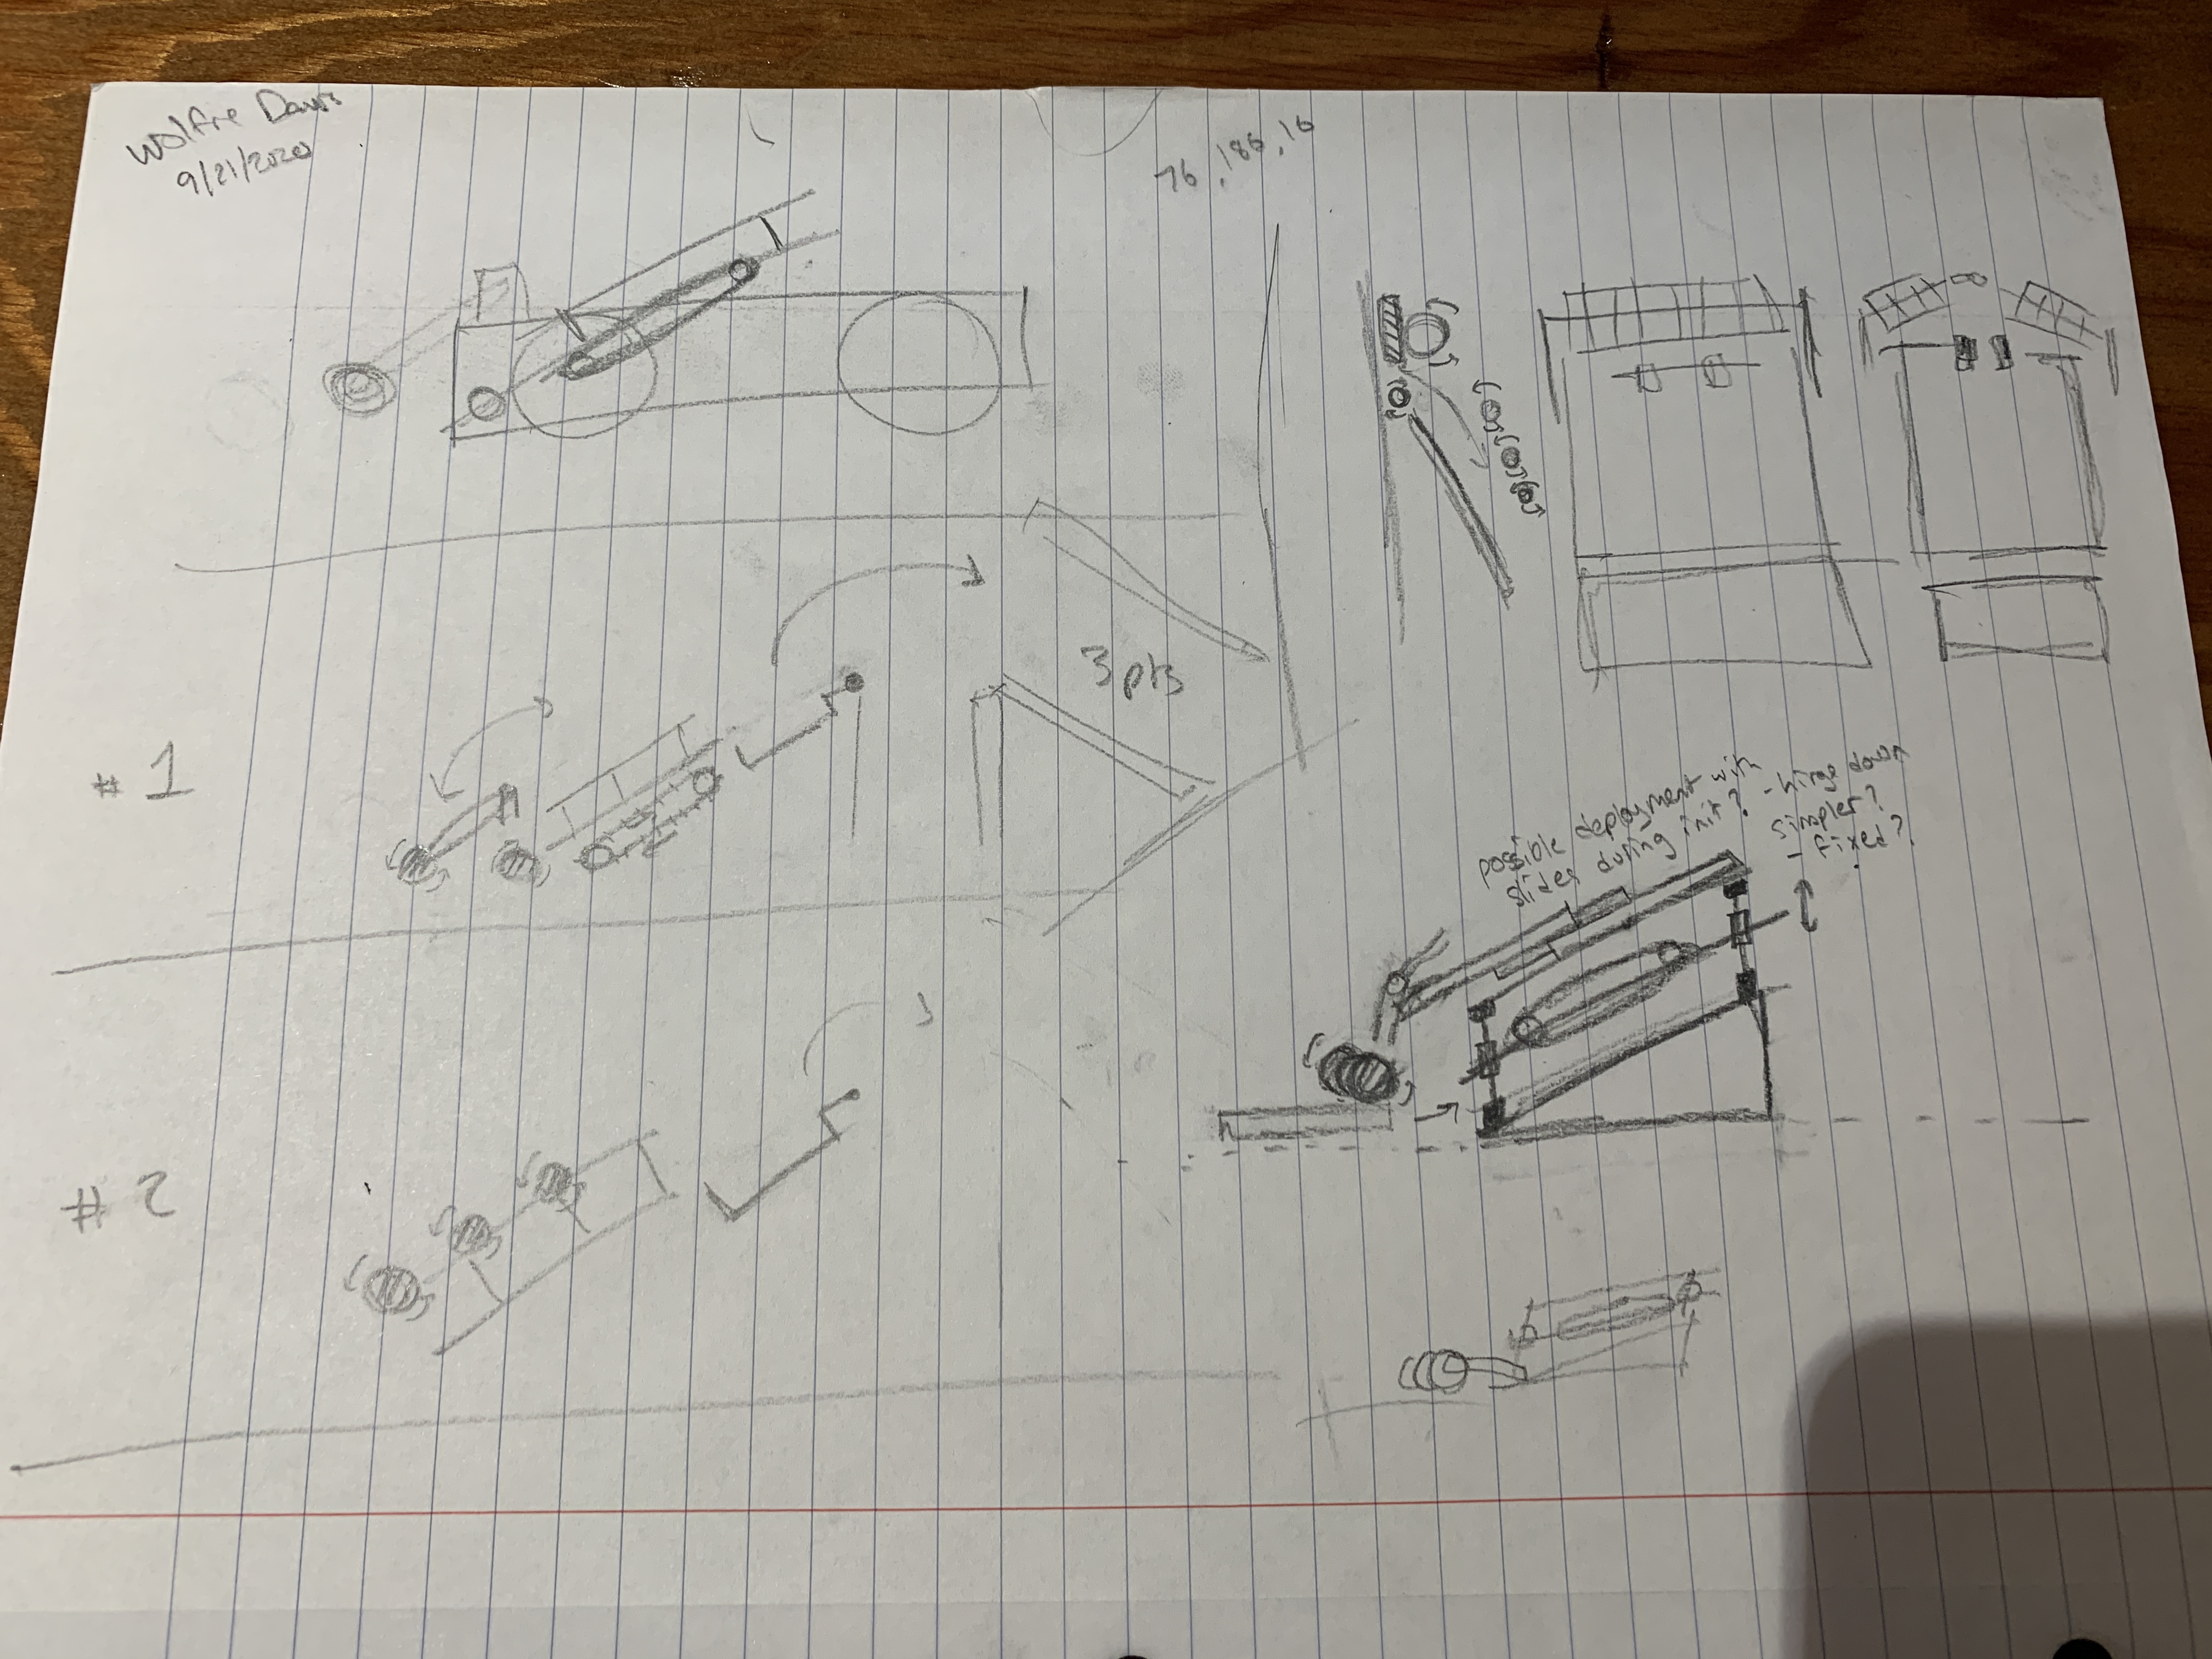 Wolfie Davis
9/21/2020
76.186.16
3 pts
# 1
possible deployment with
slides during init?
- hinge down
simpler?
- fixed?
# 2